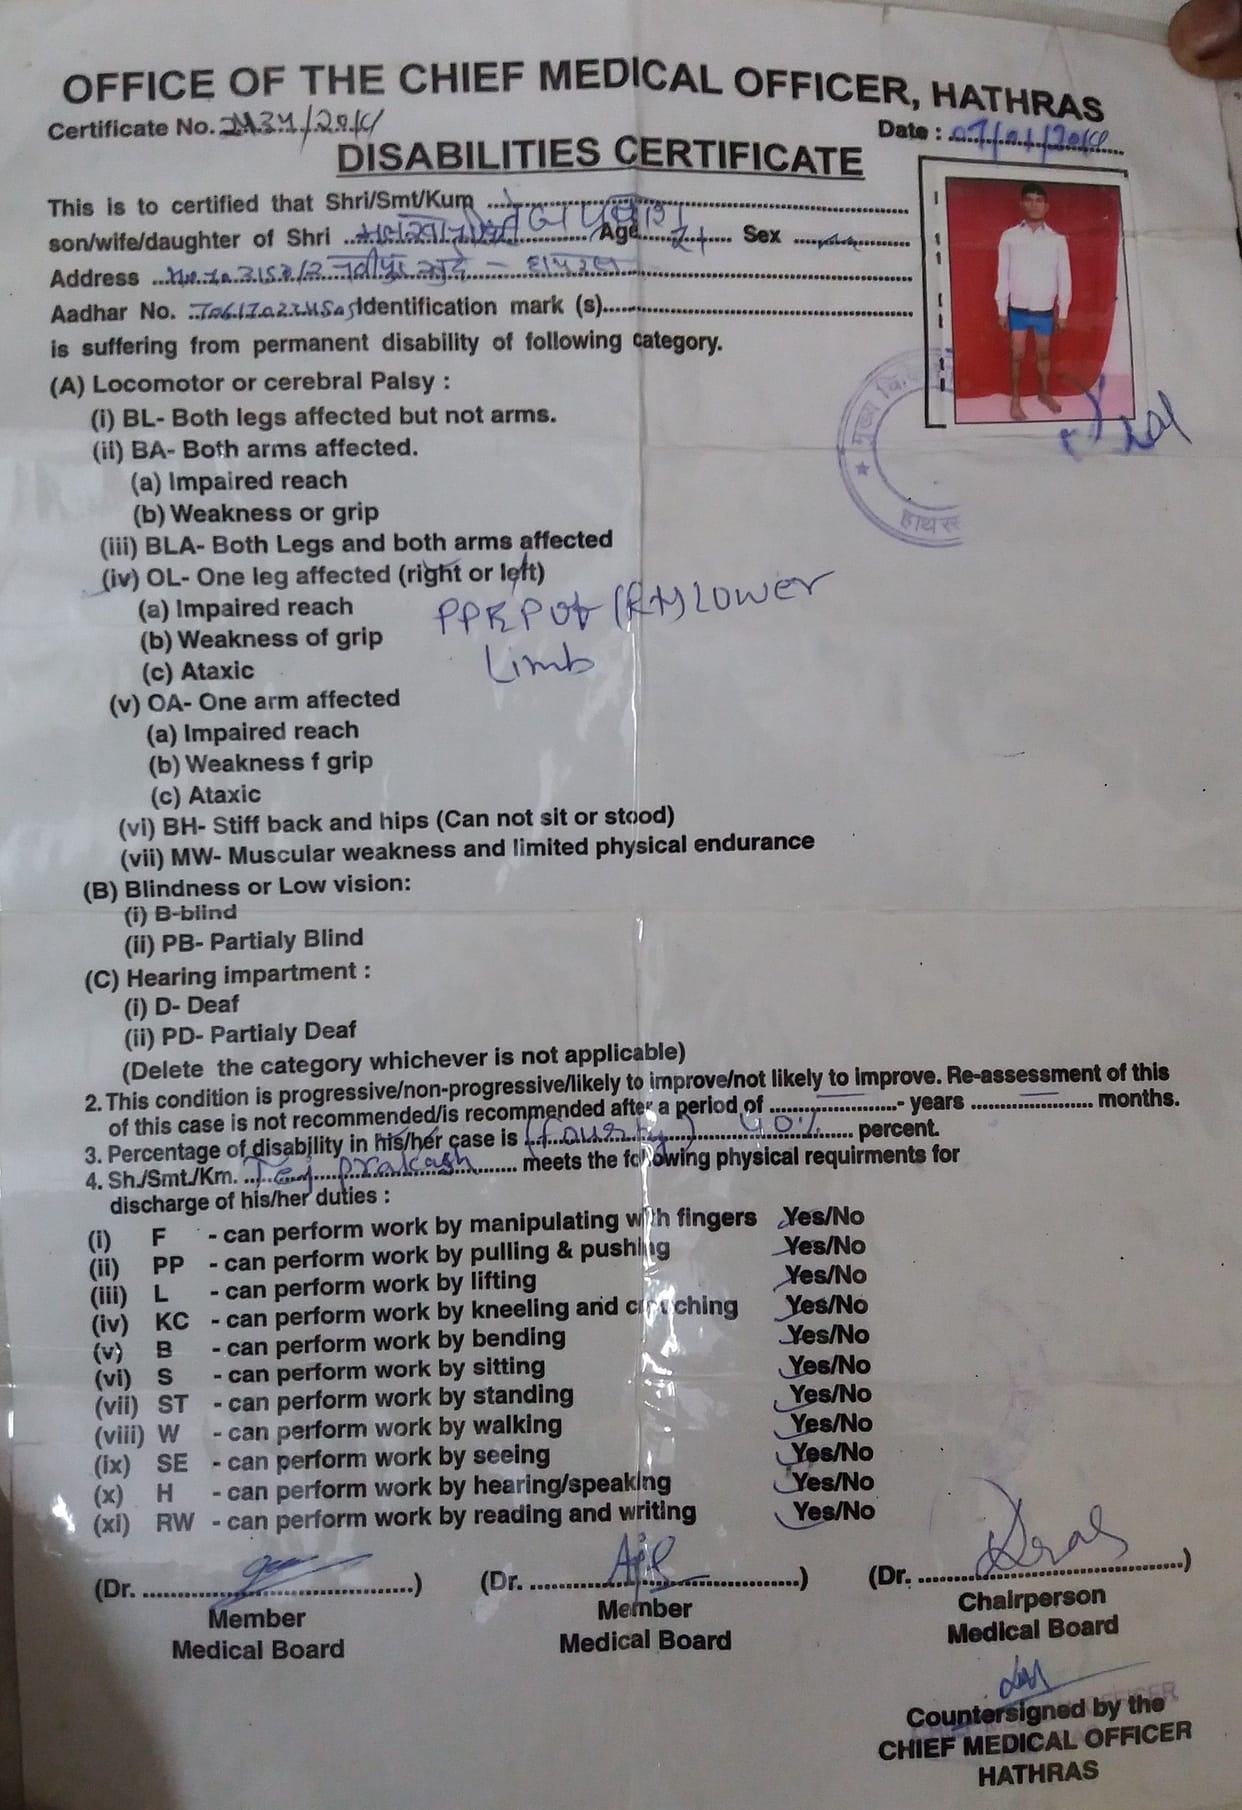 OFFICE OF THE CHIEF MEDICAL OFFICER, HATHRAS
Certificate No. /2014
Date : 07/01/2014
DISABILITIES CERTIFICATE
This is to certified that Shri/Smt/Kum
son/wife/daughter of Shri Age 21 Sex
Address
Aadhar No. Identification mark (s)
is suffering from permanent disability of following category.
(A) Locomotor or cerebral Palsy :
(i) BL- Both legs affected but not arms.
(ii) BA- Both arms affected.
(a) Impaired reach
(b) Weakness or grip
(iii) BLA- Both Legs and both arms affected
(iv) OL- One leg affected (right or left)
(a) Impaired reach
(b) Weakness of grip
(c) Ataxic
PPRP of (Rt) Lower
Limb
(v) OA- One arm affected
(a) Impaired reach
(b) Weakness f grip
(c) Ataxic
(vi) BH- Stiff back and hips (Can not sit or stood)
(vii) MW- Muscular weakness and limited physical endurance
(B) Blindness or Low vision:
(i) B-blind
(ii) PB- Partialy Blind
(C) Hearing impartment :
(i) D- Deaf
(ii) PD- Partialy Deaf
(Delete the category whichever is not applicable)
2. This condition is progressive/non-progressive/likely to improve/not likely to improve. Re-assessment of this
of this case is not recommended/is recommended after a period of - years months.
3. Percentage of disability in his/her case is (fourty) 40% percent.
4. Sh./Smt./Km. Tej prakash meets the following physical requirments for
discharge of his/her duties :
(i) F - can perform work by manipulating with fingers Yes/No
(ii) PP - can perform work by pulling & pushing Yes/No
(iii) L - can perform work by lifting Yes/No
(iv) KC - can perform work by kneeling and crouching Yes/No
(v) B - can perform work by bending Yes/No
(vi) S - can perform work by sitting Yes/No
(vii) ST - can perform work by standing Yes/No
(viii) W - can perform work by walking Yes/No
(ix) SE - can perform work by seeing Yes/No
(x) H - can perform work by hearing/speaking Yes/No
(xi) RW - can perform work by reading and writing Yes/No
(Dr. ) (Dr. ) (Dr. )
Member Member Chairperson
Medical Board Medical Board Medical Board
Countersigned by the
CHIEF MEDICAL OFFICER
HATHRAS